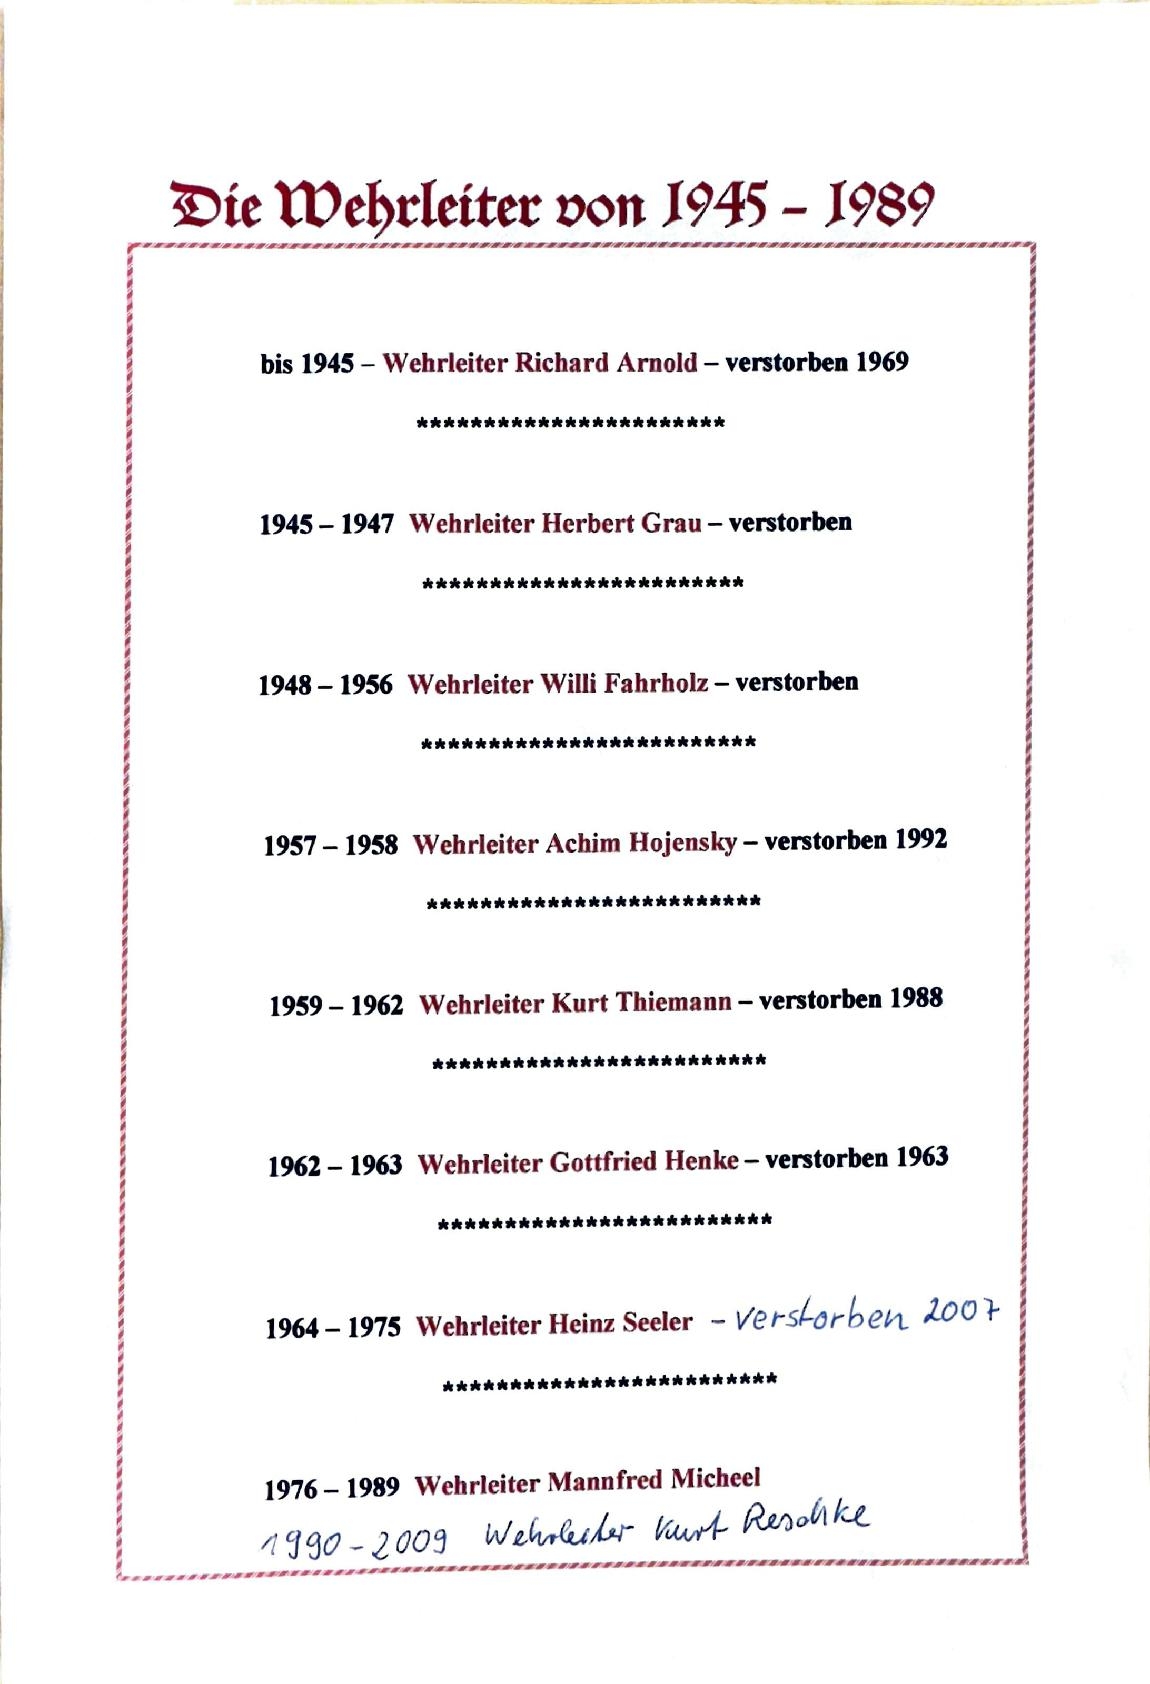 Die Wehrleiter von 1945 – 1989
bis 1945 – Wehrleiter Richard Arnold – verstorben 1969
***********************
1945 – 1947 Wehrleiter Herbert Grau – verstorben
************************
1948 – 1956 Wehrleiter Willi Fahrholz – verstorben
*************************
1957 – 1958 Wehrleiter Achim Hojensky – verstorben 1992
*************************
1959 – 1962 Wehrleiter Kurt Thiemann – verstorben 1988
*************************
1962 – 1963 Wehrleiter Gottfried Henke – verstorben 1963
*************************
1964 – 1975 Wehrleiter Heinz Seeler – verstorben 2007
*************************
1976 – 1989 Wehrleiter Mannfred Micheel
1990 – 2009 Wehrleiter Kurt Reschke